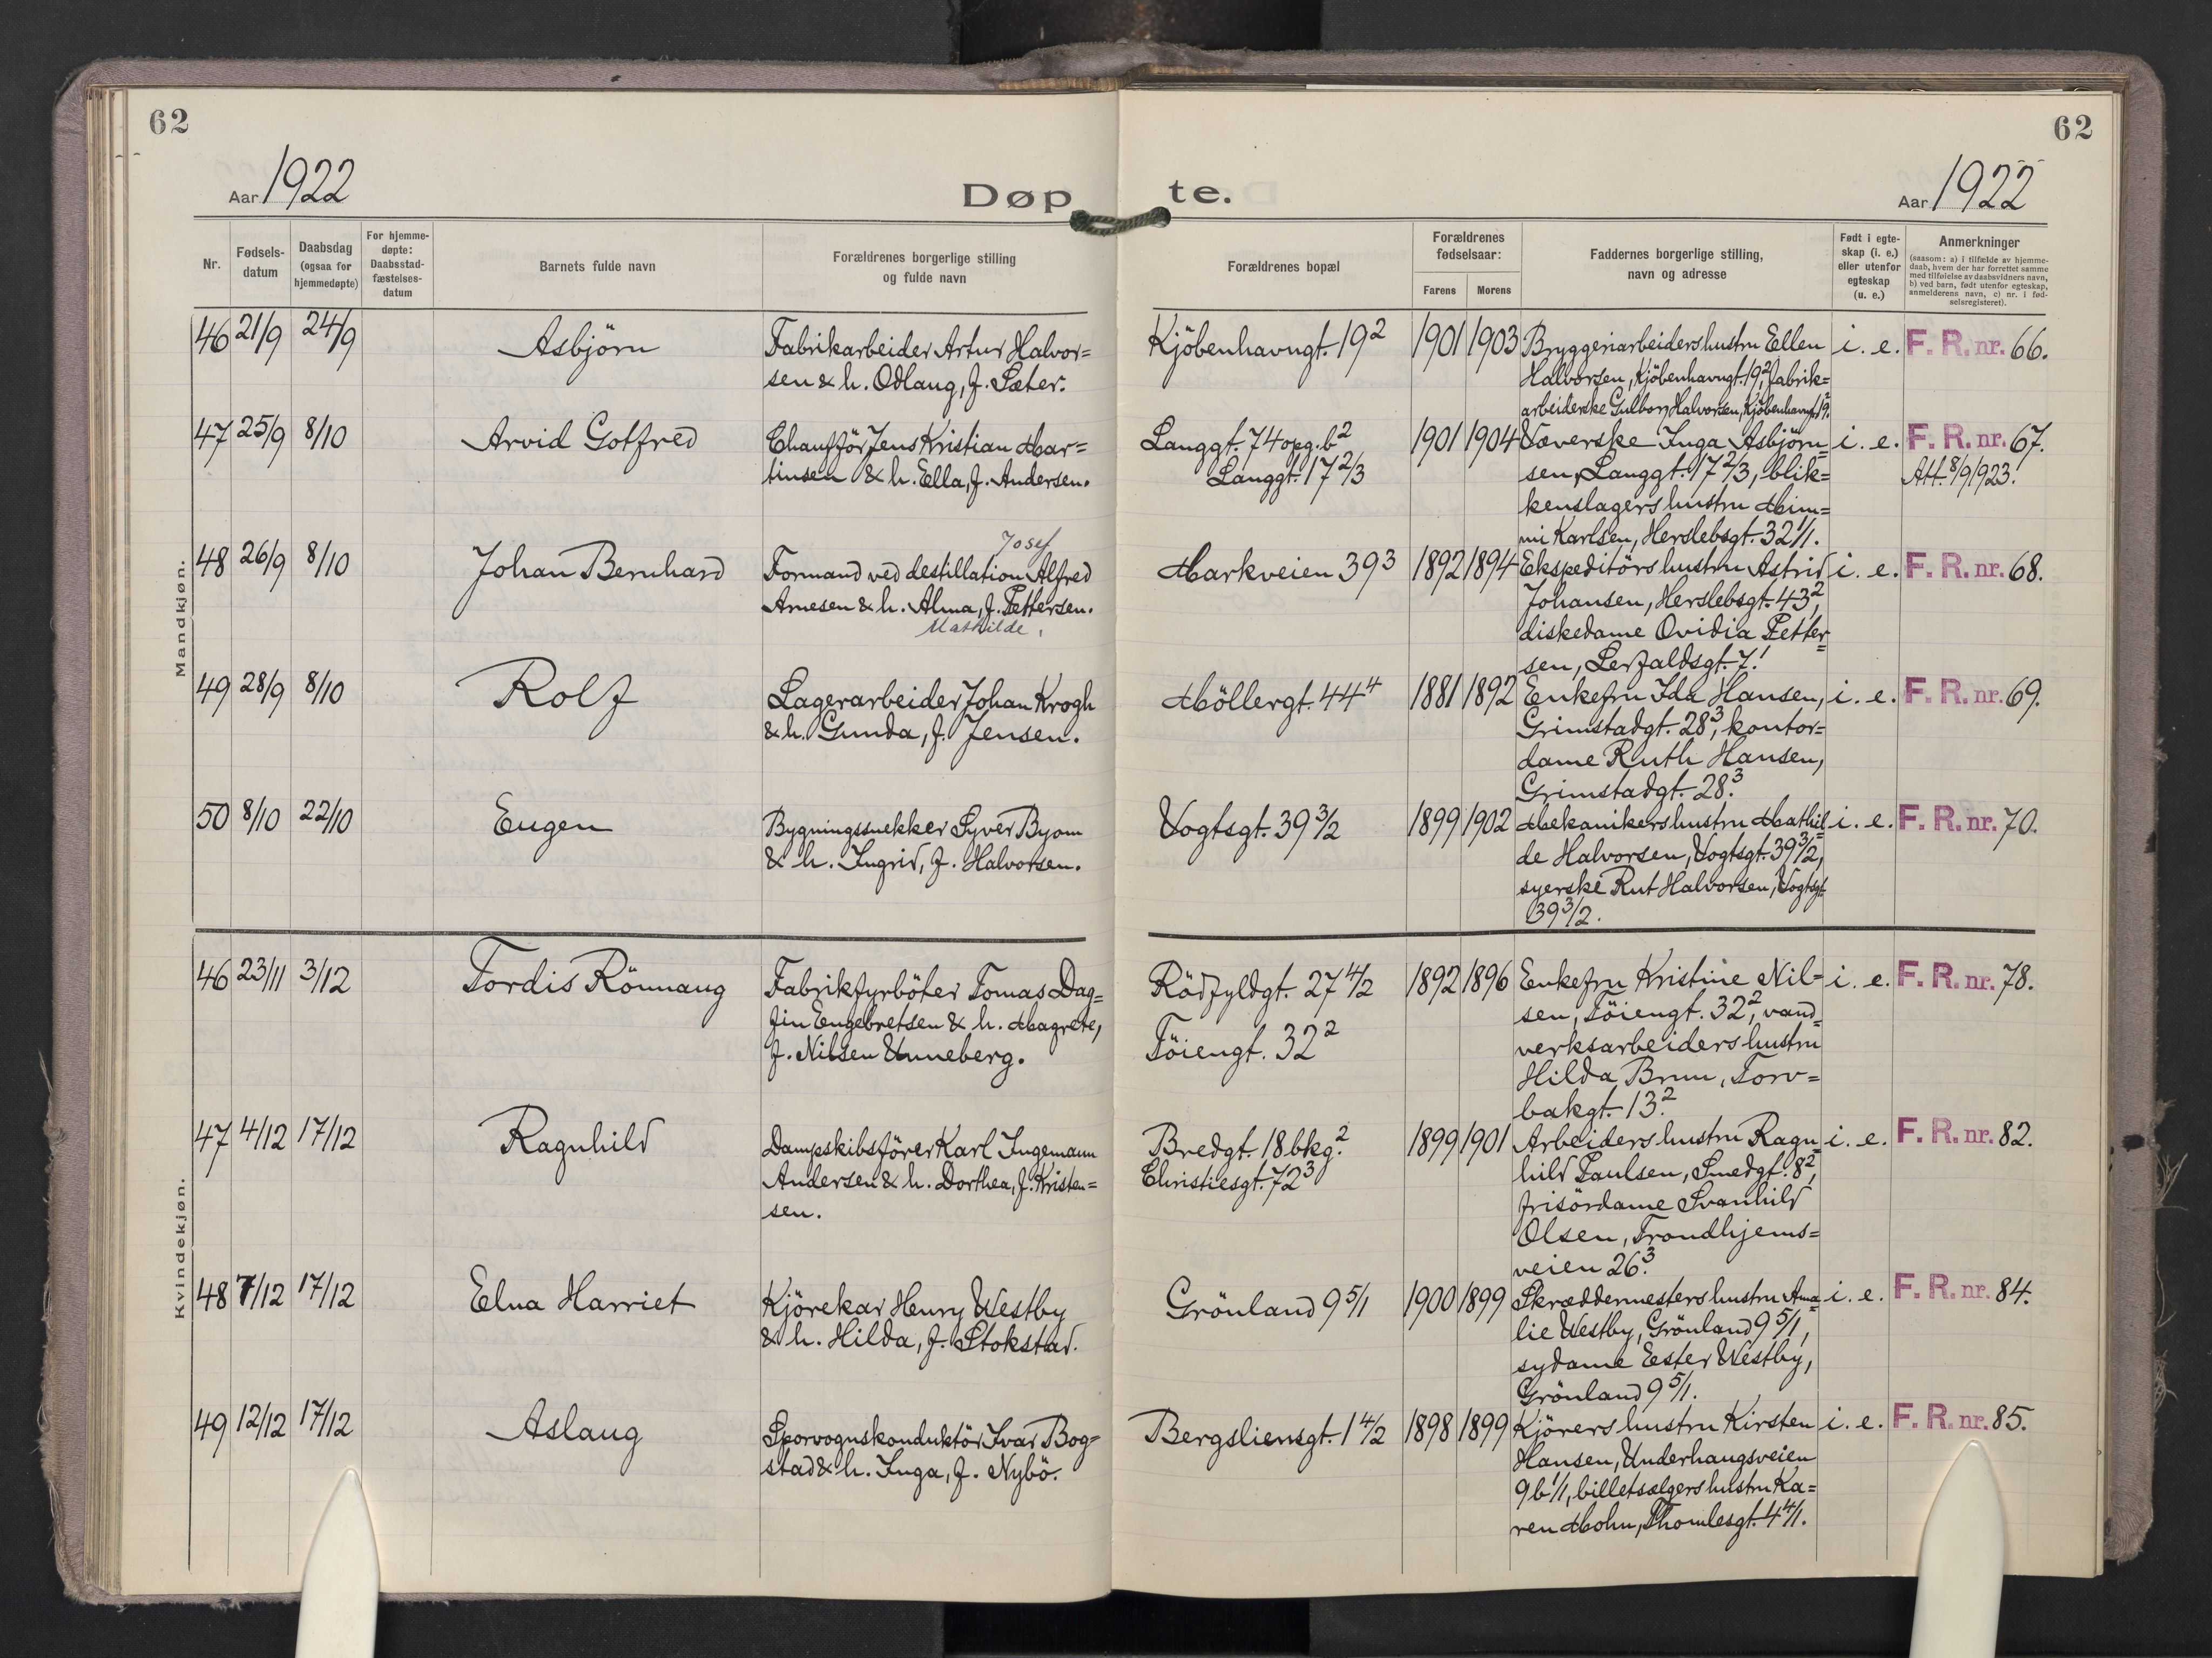 62
62
Aar 1922
Døpte.
Aar 1922
Nr.
Fødsels-
datum
Daabsdag
(ogsaa for
hjemmedøpte)
For hjemme-
døpte:
Daabsstad-
fæstelses-
datum
Barnets fulde navn
Forældrenes borgerlige stilling
og fulde navn
Forældrenes bopæl
Forældrenes
fødselsaar:
Farens
Morens
Faddernes borgerlige stilling,
navn og adresse
Født i egte-
skap (i. e.)
eller utenfor
egteskap
(u. e.)
Anmerkninger
(saasom: a) i tilfælde av hjemme-
daab, hvem der har forrettet samme
med tilføielse av daabsvidners navn,
b) ved barn, født utenfor egteskap,
anmelderens navn, c) nr. i fød-
selsregisteret).
Mandkjøn.
46 21/9 24/9
Asbjörn
Fabrikarbeider Artur Halvor=
sen & h. Odlaug, f. Sæter.
Kjöbenhavngt. 19²
1901 1903
Bryggeriarbeiders hustru Ellen
Halvorsen, Kjöbenhavngt. 19², fabrik=
arbeiderske Gulborg Halvorsen, Kjöbenhavngt. 19².
i. e.
F. R. nr. 66.
47 25/9 8/10
Arvid Gotfred
Chaufför Jens Kristian Mar=
tinsen & h. Ella, f. Andersen.
Langgt. 74 opg. b²
Langgt. 17 2/3
1901 1904
Væverske Inga Asbjörn=
sen, Langgt. 17 2/3, blik=
kenslagers hustru Mim=
mi Karlsen, Herslebsgt. 32 1/1.
i. e.
F. R. nr. 67.
Att. 8/9 1923.
48 26/9 8/10
Johan Bernhard
Josef
Formand ved destillation Alfred
Arnesen & h. Alma, f. Pettersen.
Mathilde.
Markveien 39³
1892 1894
Ekspeditörs hustru Astrid
Johansen, Herslebsgt. 43²,
diskedame Ovidia Petter=
sen, Lerfaldsgt. 7¹.
i. e.
F. R. nr. 68.
49 28/9 8/10
Rolf
Lagerarbeider Johan Krogh
& h. Gunda, f. Jensen.
Möllergt. 44⁴
1881 1892
Enkefru Ida Hansen,
Grimstadgt. 28³, kontor=
dame Ruth Hansen,
Grimstadgt. 28³.
i. e.
F. R. nr. 69.
50 8/10 22/10
Eugen
Bygningssnekker Syver Byom
& h. Ingrid, f. Halvorsen.
Vogtsgt. 39 3/2
1899 1902
Mekanikers hustru Mathil=
de Halvorsen, Vogtsgt. 39 3/2,
syerske Rut Halvorsen, Vogtsgt.
39 3/2.
i. e.
F. R. nr. 70.
Kvindekjøn.
46 23/11 3/12
Tordis Rönnaug
Fabrikfyrböter Tomas Dag=
fin Engebretsen & h. Magrete,
f. Nilsen Unneberg.
Rödfyldgt. 27 4/2
Töiengt. 32²
1892 1896
Enkefru Kristine Nil=
sen, Töiengt. 32², vand=
verksarbeiders hustru
Hilda Brun, Torv=
bakgt. 13².
i. e.
F. R. nr. 78.
47 4/12 17/12
Ragnhild
Dampskibsförer Karl Ingemann
Andersen & h. Dorthea, f. Kristen=
sen.
Bredgt. 18 bkg.²
Christiesgt. 72³
1899 1901
Arbeiders hustru Ragn=
hild Paulsen, Smedgt. 8²,
frisördame Svanhild
Olsen, Trondhjems=
veien 26³.
i. e.
F. R. nr. 82.
48 7/12 17/12
Elna Harriet
Kjörekar Henry Westby
& h. Hilda, f. Stokstad.
Grönland 9 5/1
1900 1899
Skræddermesters hustru Ama=
lie Westby, Grönland 9 5/1,
sydame Ester Westby,
Grönland 9 5/1.
i. e.
F. R. nr. 84.
49 12/12 17/12
Aslaug
Sporvognskonduktör Ivar Bog=
stad & h. Inga, f. Nybö.
Bergsliensgt. 1 4/2
1898 1899
Kjörers hustru Kirsten
Hansen, Underhaugsveien
9b 1/1, billetsælgers hustru Ka=
ren Mohn, Thomlesgt. 4 4/1.
i. e.
F. R. nr. 85.